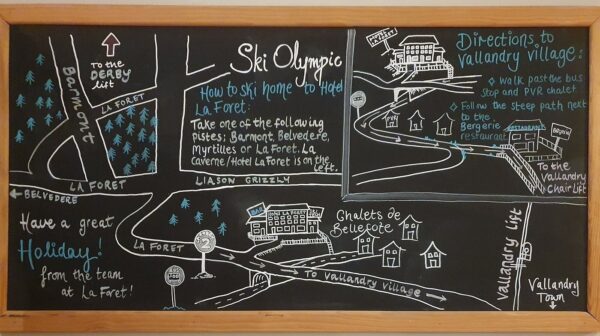 To the
DERBY
lift
Barmont
LA FORET
LA FORET
BELVEDERE
Ski Olympic
How to ski home to Hotel
La Foret:
Take one of the following
pistes: Barmont, Belvedere,
Myrtilles or La Foret. La
Caverne/Hotel La Foret is on the
left.
LIASON GRIZZLY
HOTEL
LA FORET
Directions to
Vallandry village:
Walk past the bus
stop and PVR chalet
Follow the steep path next
to the
Bergerie
restaurant
RESTAURANT
To the
Vallandry
Chair Lift
Have a great
Holiday!
from the team
at La Foret!
LA FORET
2
BAR
HOTEL LA FORET
Chalets de
Bellefote
To Vallandry village
Vallandry Lift
Vallandry
Town